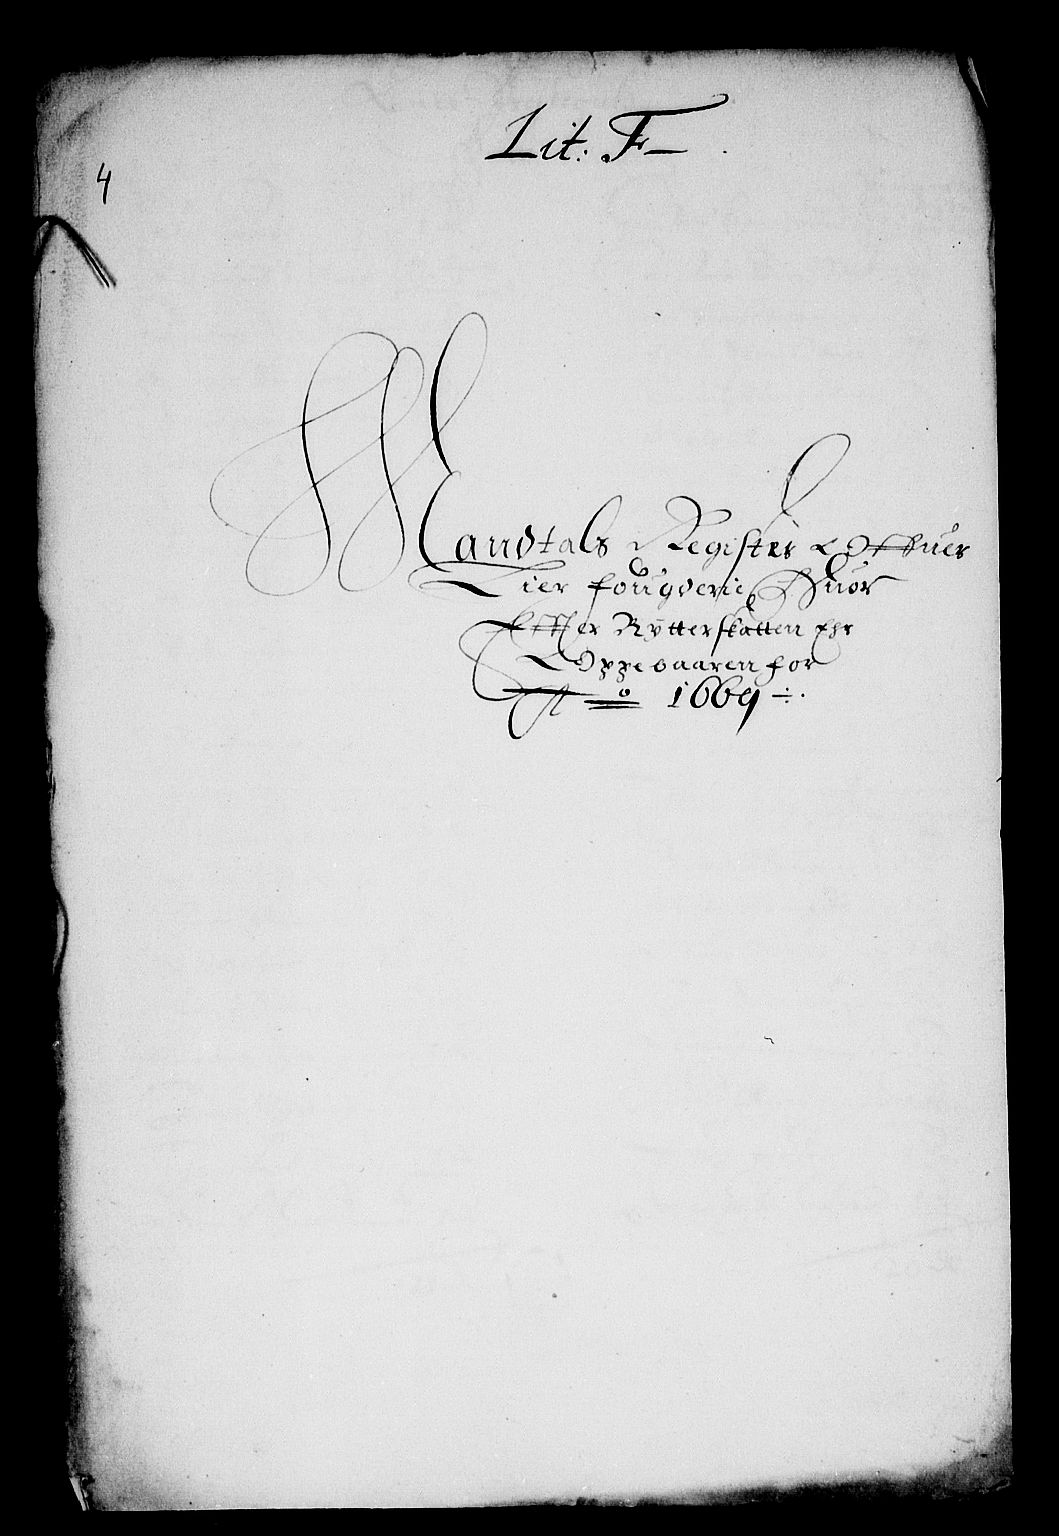 Lit: F
4
Mandtals Register Offuer
Lier fougderie Huor
Effter Rÿtterskatten Ehr
Oppebaaren for
Ao 1669